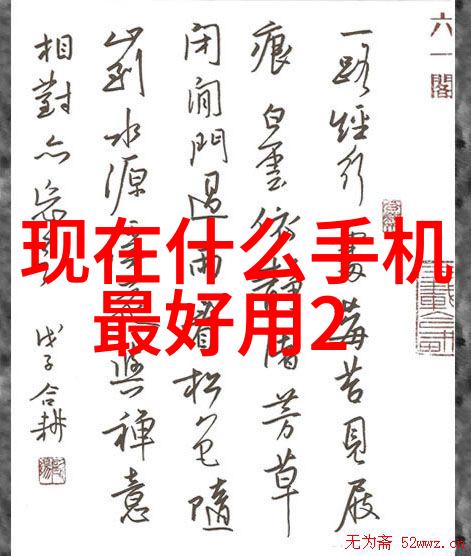 六一閣
一路經行處莓苔見屐
痕白雲依靜渚芳草
闭闲門過雨看松色隨
山到水源與禅意
相對亦忘
戊子合耕
现在什么手机
最好用2
无为斋 52wwz.c